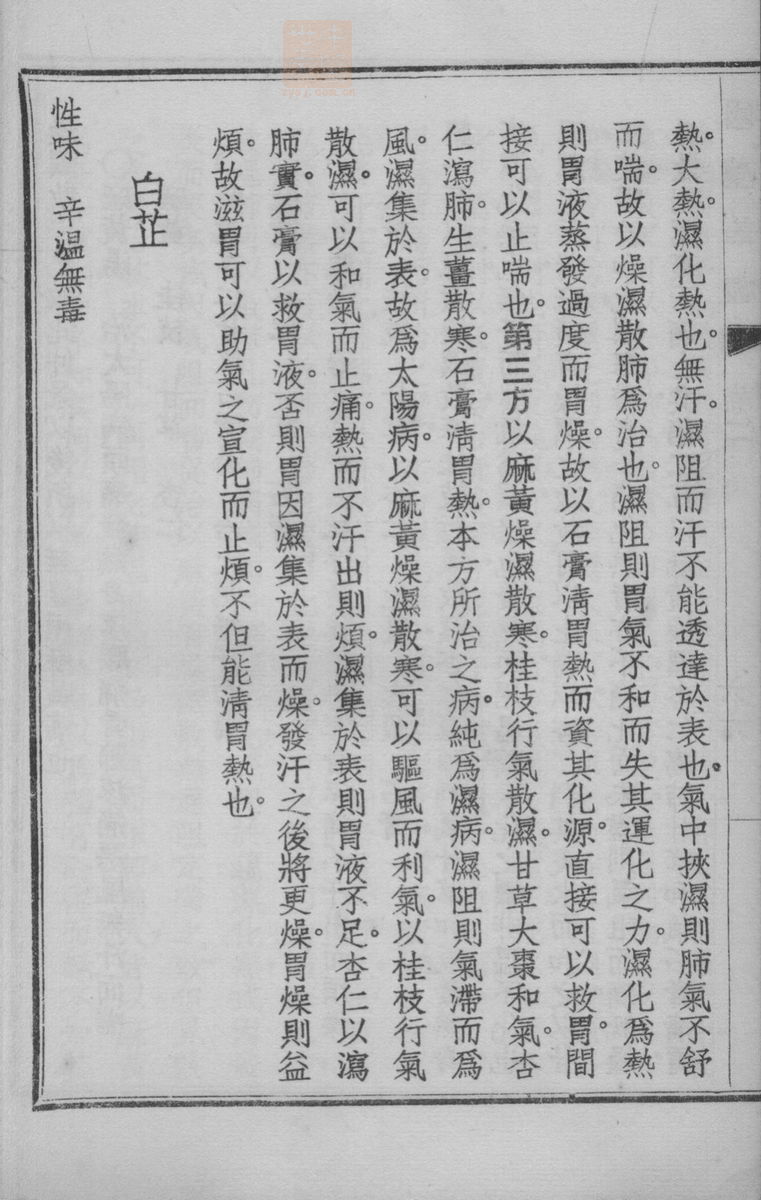 熱。大熱。濕化熱也。無汗。濕阻而汗不能透達於表也。氣中挾濕則肺氣不舒
而喘。故以燥濕散肺爲治也。濕阻則胃氣不和而失其運化之力。濕化爲熱
則胃液蒸發過度而胃燥。故以石膏淸胃熱而資其化源。直接可以救胃。間
接可以止喘也。第三方以麻黃燥濕散寒。桂枝行氣散濕。甘草大棗和氣。杏
仁瀉肺。生薑散寒。石膏淸胃熱。本方所治之病。純爲濕病。濕阻則氣滯而爲
風。濕集於表。故爲太陽病。以麻黃燥濕散寒。可以驅風而利氣。以桂枝行氣
散濕。可以和氣而止痛。熱而不汗出則煩。濕集於表則胃液不足。杏仁以瀉
肺實。石膏以救胃液。否則胃因濕集於表而燥。發汗之後將更燥。胃燥則益
煩。故滋胃可以助氣之宣化而止煩。不但能淸胃熱也。
白芷
性味　辛溫無毒